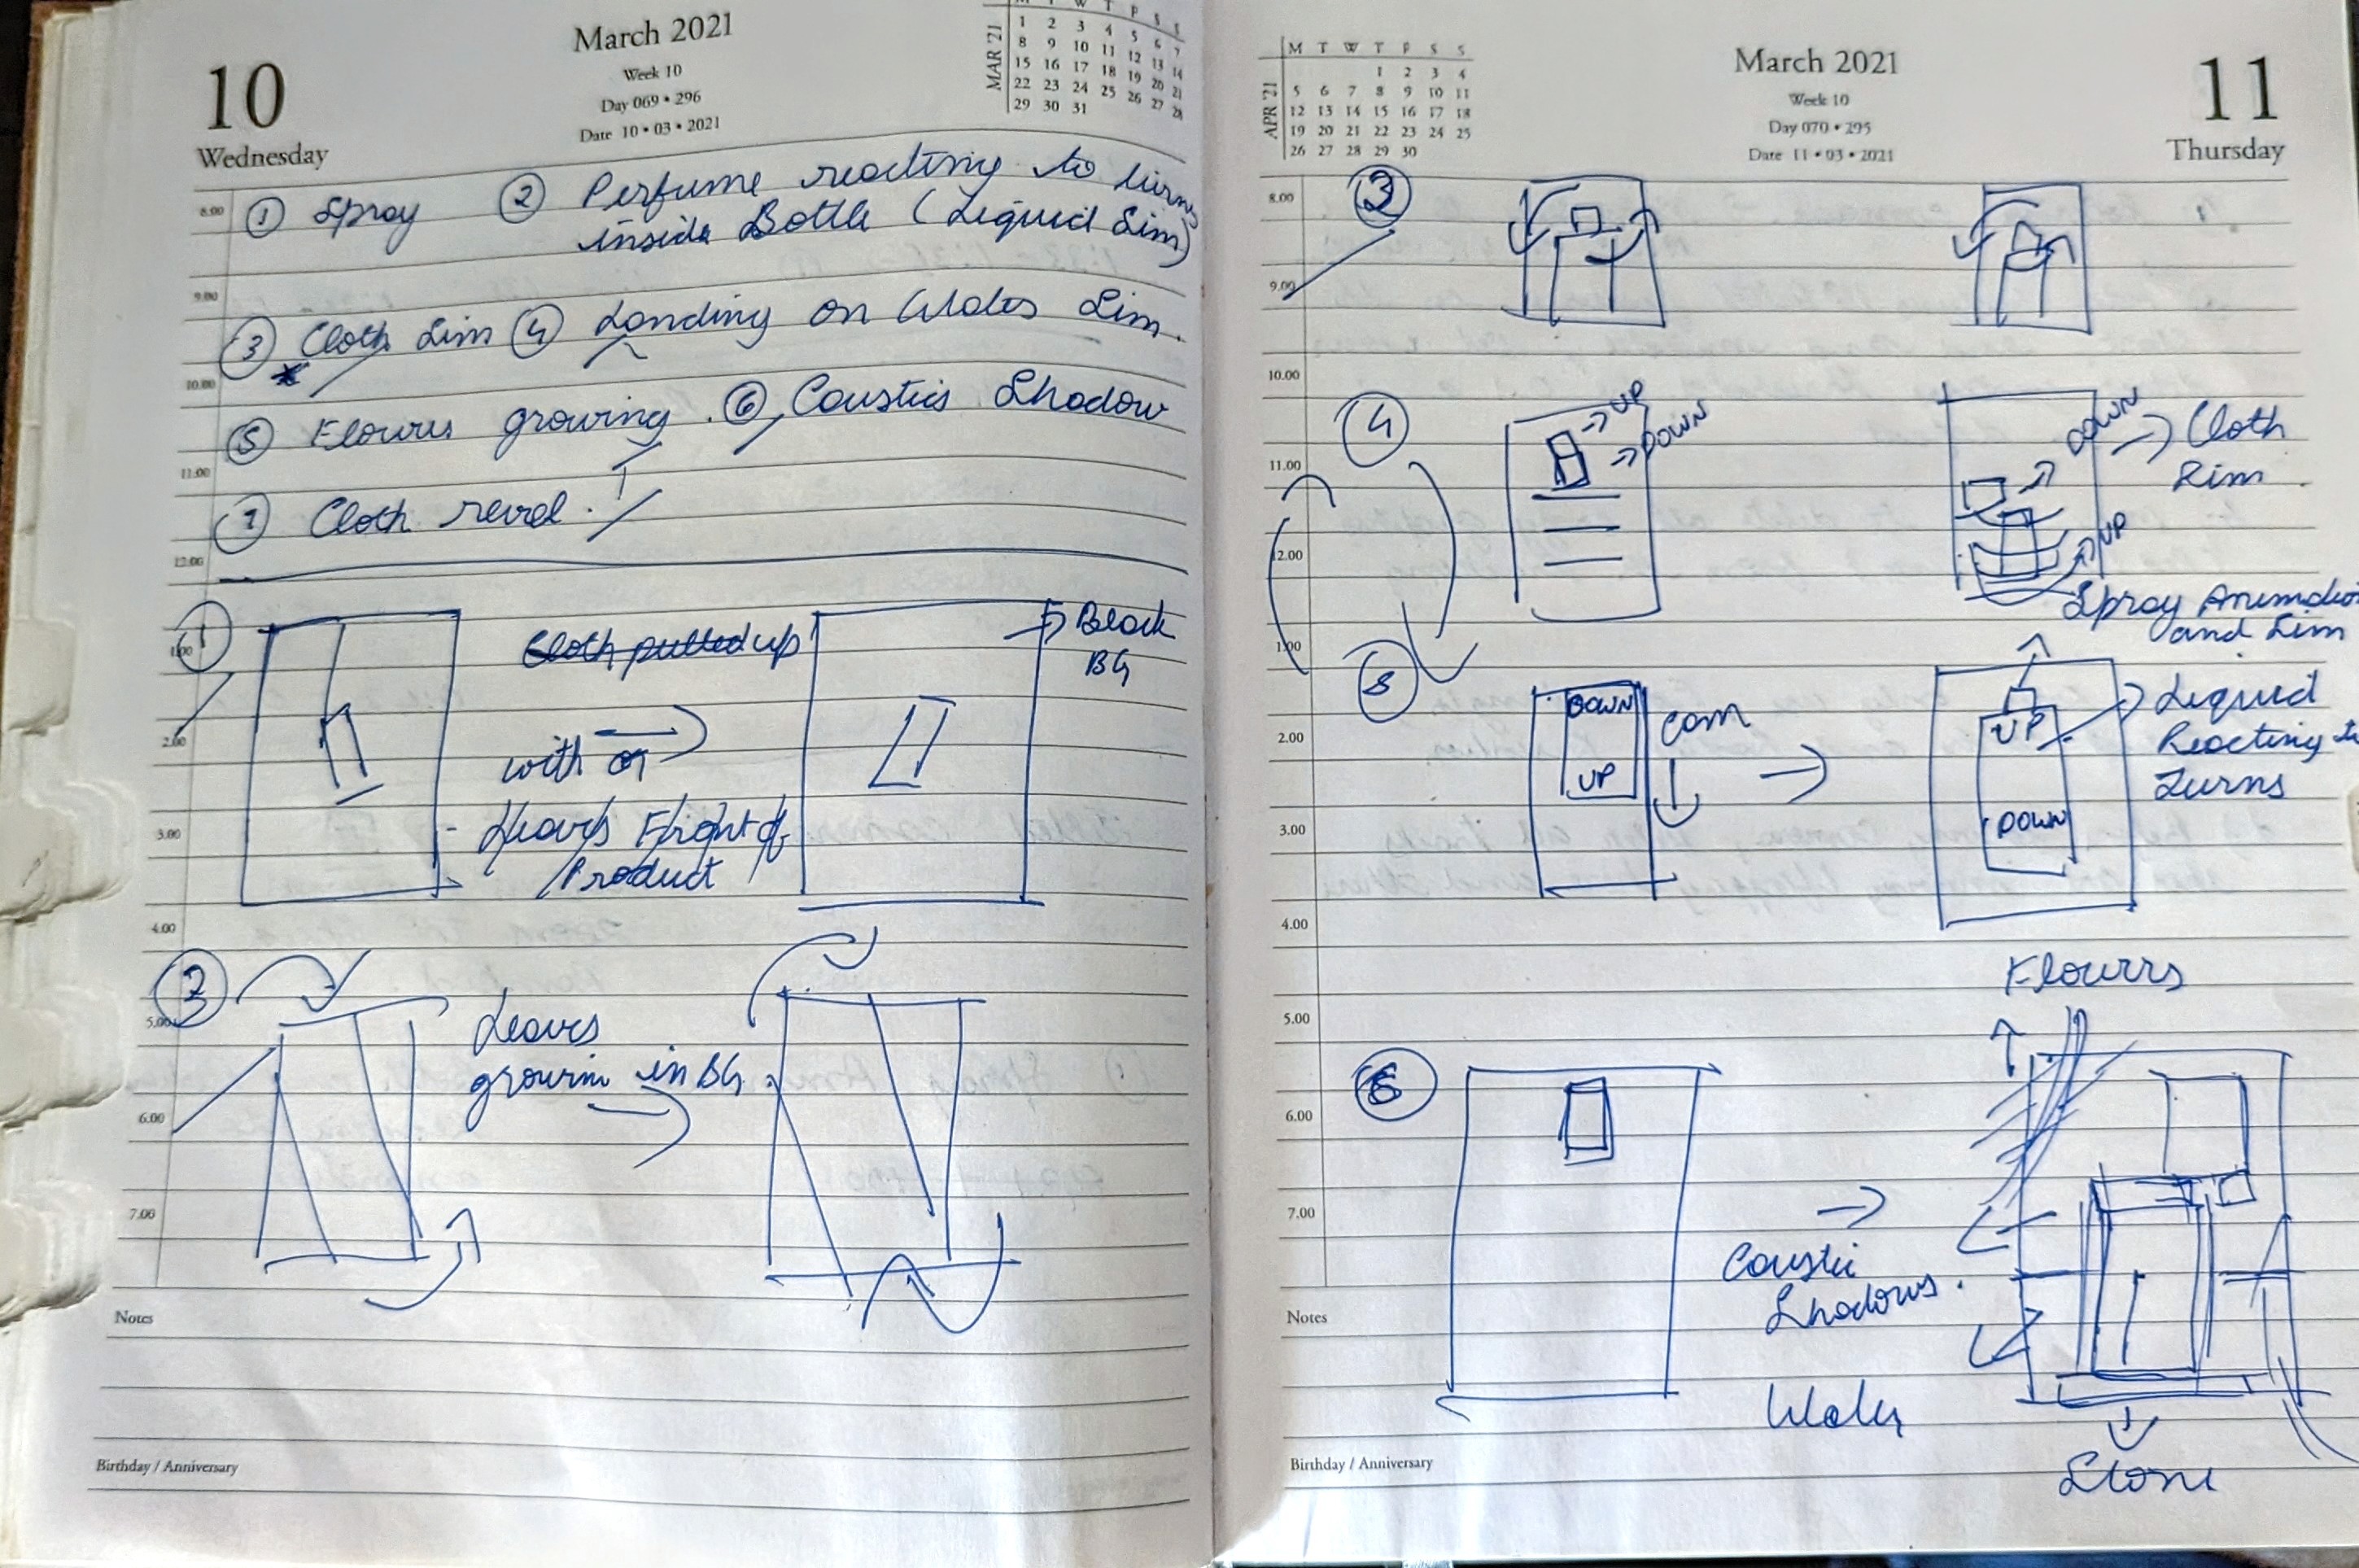 10
Wednesday
March 2021
Week 10
Day 069 • 296
Date 10 • 03 • 2021
MAR '21
M T W T F S S
1 2 3 4 5 6 7
8 9 10 11 12 13 14
15 16 17 18 19 20 21
22 23 24 25 26 27 28
29 30 31
8.00
① Spray ② Perfume reacting to turns
inside Bottle (Liquid Sim)
9.00
③ Cloth Sim ④ Landing on Water Sim.
10.00
⑤ Flowers growing. ⑥ Caustics Shadow
11.00
⑦ Cloth revel.
12.00
①
1.00
Cloth pulled up
Black
BG
2.00
with or
3.00
Leaves Flight of
Product
4.00
②
5.00
Leaves
growin in BG.
6.00
7.00
Notes
Birthday / Anniversary
APR '21
M T W T F S S
1 2 3 4
5 6 7 8 9 10 11
12 13 14 15 16 17 18
19 20 21 22 23 24 25
26 27 28 29 30
March 2021
Week 10
Day 070 • 295
Date 11 • 03 • 2021
11
Thursday
8.00
③
9.00
10.00
④
UP
DOWN
DOWN
Cloth
Sim.
11.00
12.00
UP
Spray Animation
and Sim
1.00
5
DOWN
UP
Cam
UP
DOWN
Liquid
Reacting to
Turns
2.00
3.00
4.00
Flowers
5.00
⑥
6.00
7.00
Caustic
Shadows.
Notes
Water
Stone
Birthday / Anniversary